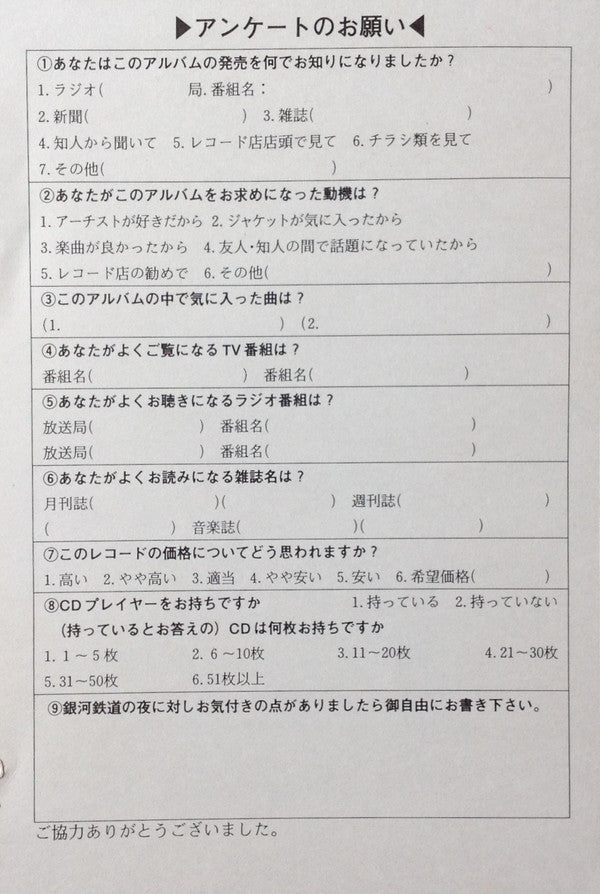 ▶アンケートのお願い◀
①あなたはこのアルバムの発売を何でお知りになりましたか?
1.ラジオ( 局.番組名: )
2.新聞( ) 3.雑誌( )
4.知人から聞いて 5.レコード店店頭で見て 6.チラシ類を見て
7.その他( )
②あなたがこのアルバムをお求めになった動機は?
1.アーチストが好きだから 2.ジャケットが気に入ったから
3.楽曲が良かったから 4.友人・知人の間で話題になっていたから
5.レコード店の勧めで 6.その他( )
③このアルバムの中で気に入った曲は?
(1. ) (2. )
④あなたがよくご覧になるTV番組は?
番組名( ) 番組名( )
⑤あなたがよくお聴きになるラジオ番組は?
放送局( ) 番組名( )
放送局( ) 番組名( )
⑥あなたがよくお読みになる雑誌名は?
月刊誌( )( ) 週刊誌( )
( ) 音楽誌( )( )
⑦このレコードの価格についてどう思われますか?
1.高い 2.やや高い 3.適当 4.やや安い 5.安い 6.希望価格( )
⑧CDプレイヤーをお持ちですか 1.持っている 2.持っていない
(持っているとお答えの) CDは何枚お持ちですか
1.1~5枚 2.6~10枚 3.11~20枚 4.21~30枚
5.31~50枚 6.51枚以上
⑨銀河鉄道の夜に対しお気付きの点がありましたら御自由にお書き下さい。
ご協力ありがとうございました。